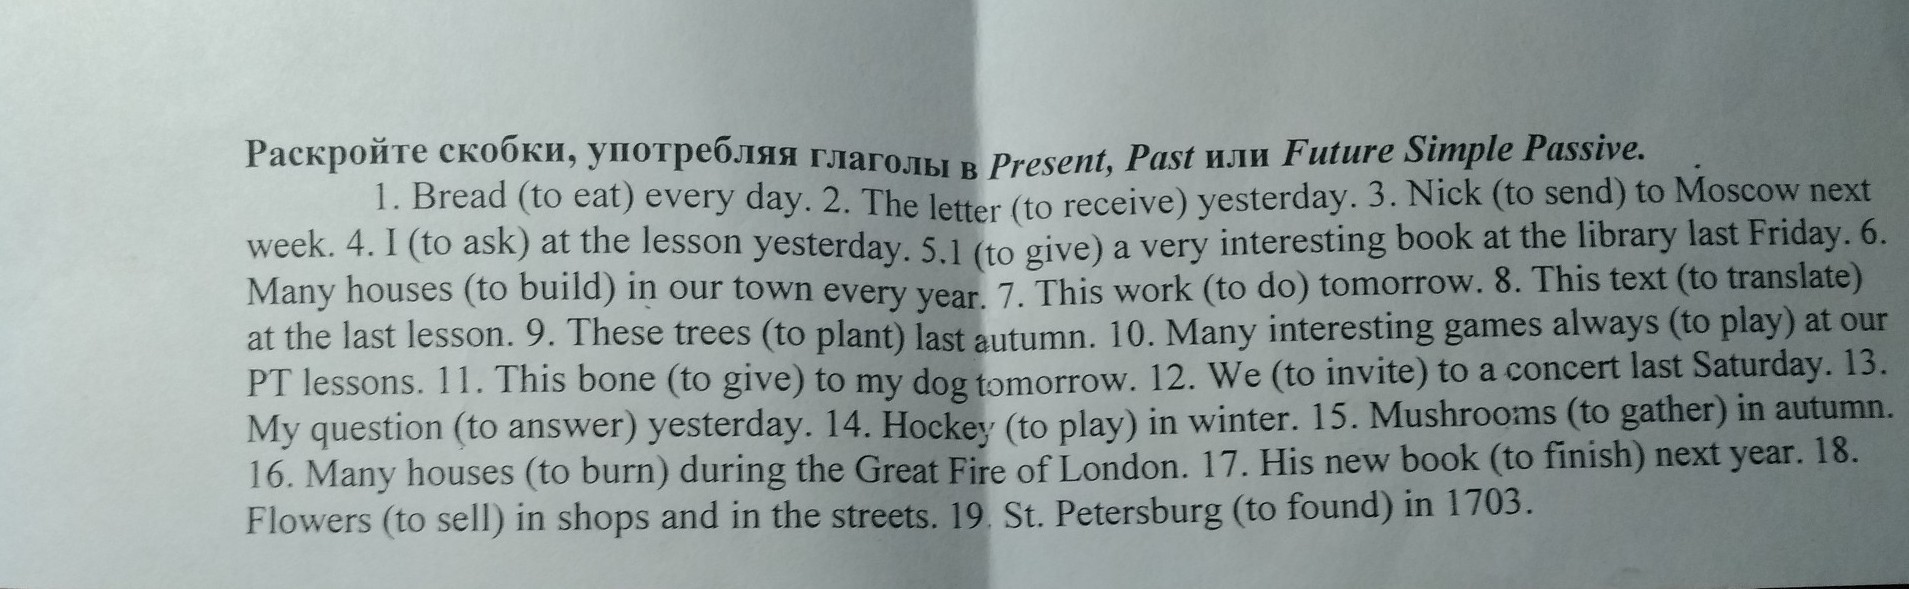 Раскройте скобки, употребляя глаголы в Present, Past или Future Simple Passive.
1. Bread (to eat) every day. 2. The letter (to receive) yesterday. 3. Nick (to send) to Moscow next
week. 4. I (to ask) at the lesson yesterday. 5.1 (to give) a very interesting book at the library last Friday. 6.
Many houses (to build) in our town every year. 7. This work (to do) tomorrow. 8. This text (to translate)
at the last lesson. 9. These trees (to plant) last autumn. 10. Many interesting games always (to play) at our
PT lessons. 11. This bone (to give) to my dog tomorrow. 12. We (to invite) to a concert last Saturday. 13.
My question (to answer) yesterday. 14. Hockey (to play) in winter. 15. Mushrooms (to gather) in autumn.
16. Many houses (to burn) during the Great Fire of London. 17. His new book (to finish) next year. 18.
Flowers (to sell) in shops and in the streets. 19. St. Petersburg (to found) in 1703.